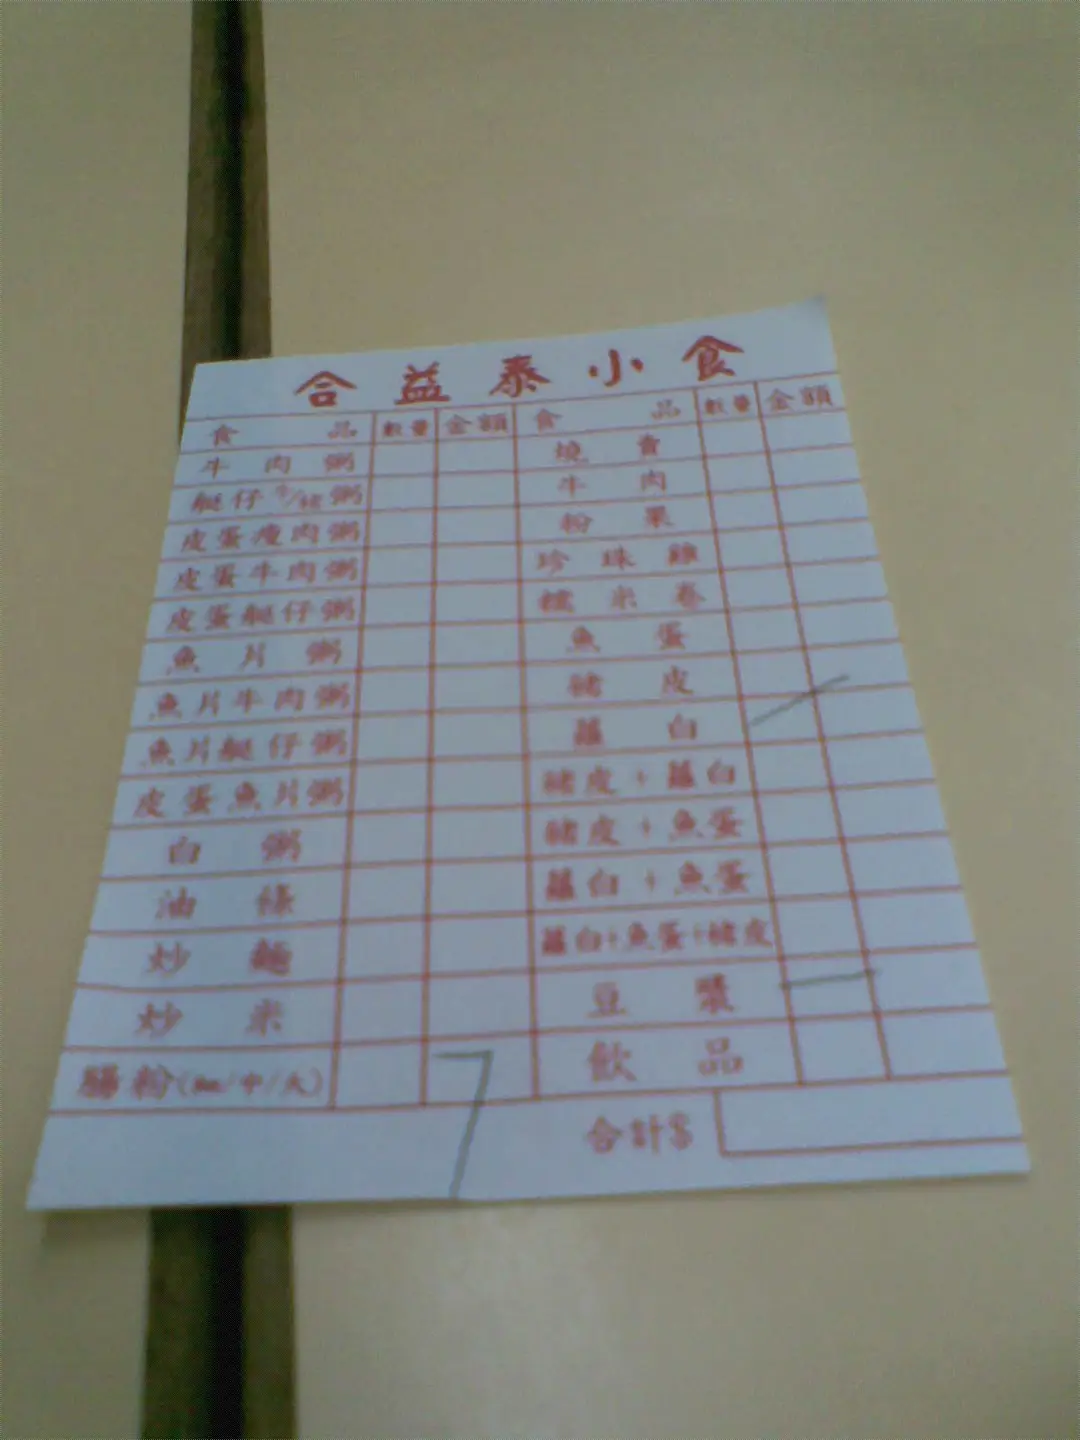 合益泰小食
食品 數量 金額 食品 數量 金額
牛肉粥
艇仔 粥
皮蛋瘦肉粥
皮蛋牛肉粥
皮蛋艇仔粥
魚片粥
魚片牛肉粥
魚片艇仔粥
皮蛋魚片粥
白粥
油條
炒麵
炒米
腸粉(細/中/大)
燒賣
牛肉
粉果
珍珠雞
糯米卷
魚蛋
豬皮
蘿白
豬皮+蘿白
豬皮+魚蛋
蘿白+魚蛋
蘿白+魚蛋+豬皮
豆漿
飲品
合計$
7